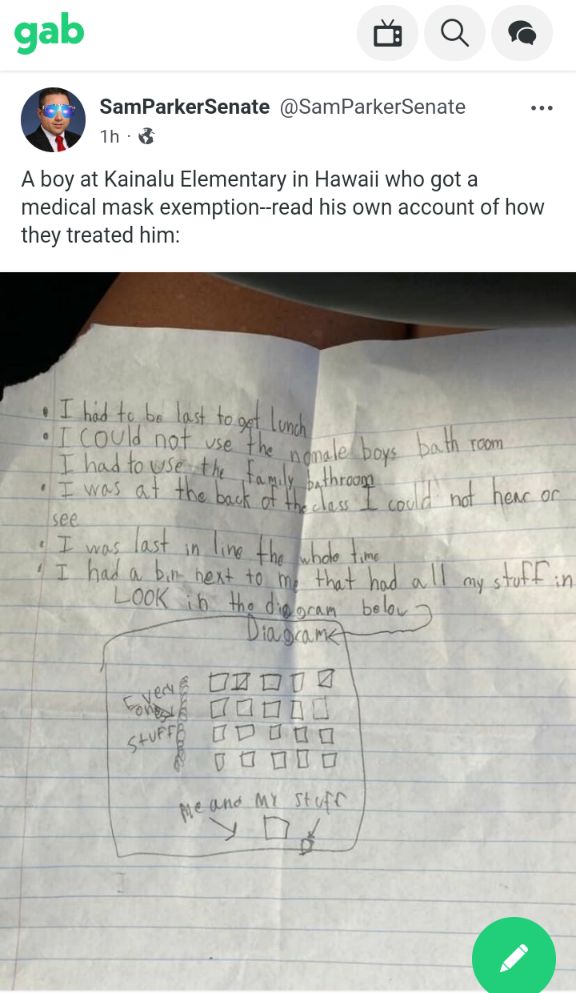 gab
SamParkerSenate @SamParkerSenate
1h ·
A boy at Kainalu Elementary in Hawaii who got a
medical mask exemption--read his own account of how
they treated him:
• I had to be last to get lunch
• I COULD not use the nomale boys bath room
I had to use the family bathroom
• I was at the back of the class I could not hear or
see
• I was last in line the whole time
• I had a bin next to me that had all my stuff in
LOOK in the diagram below
Diagram
Every
ones
STUFF
Me and MY stuff